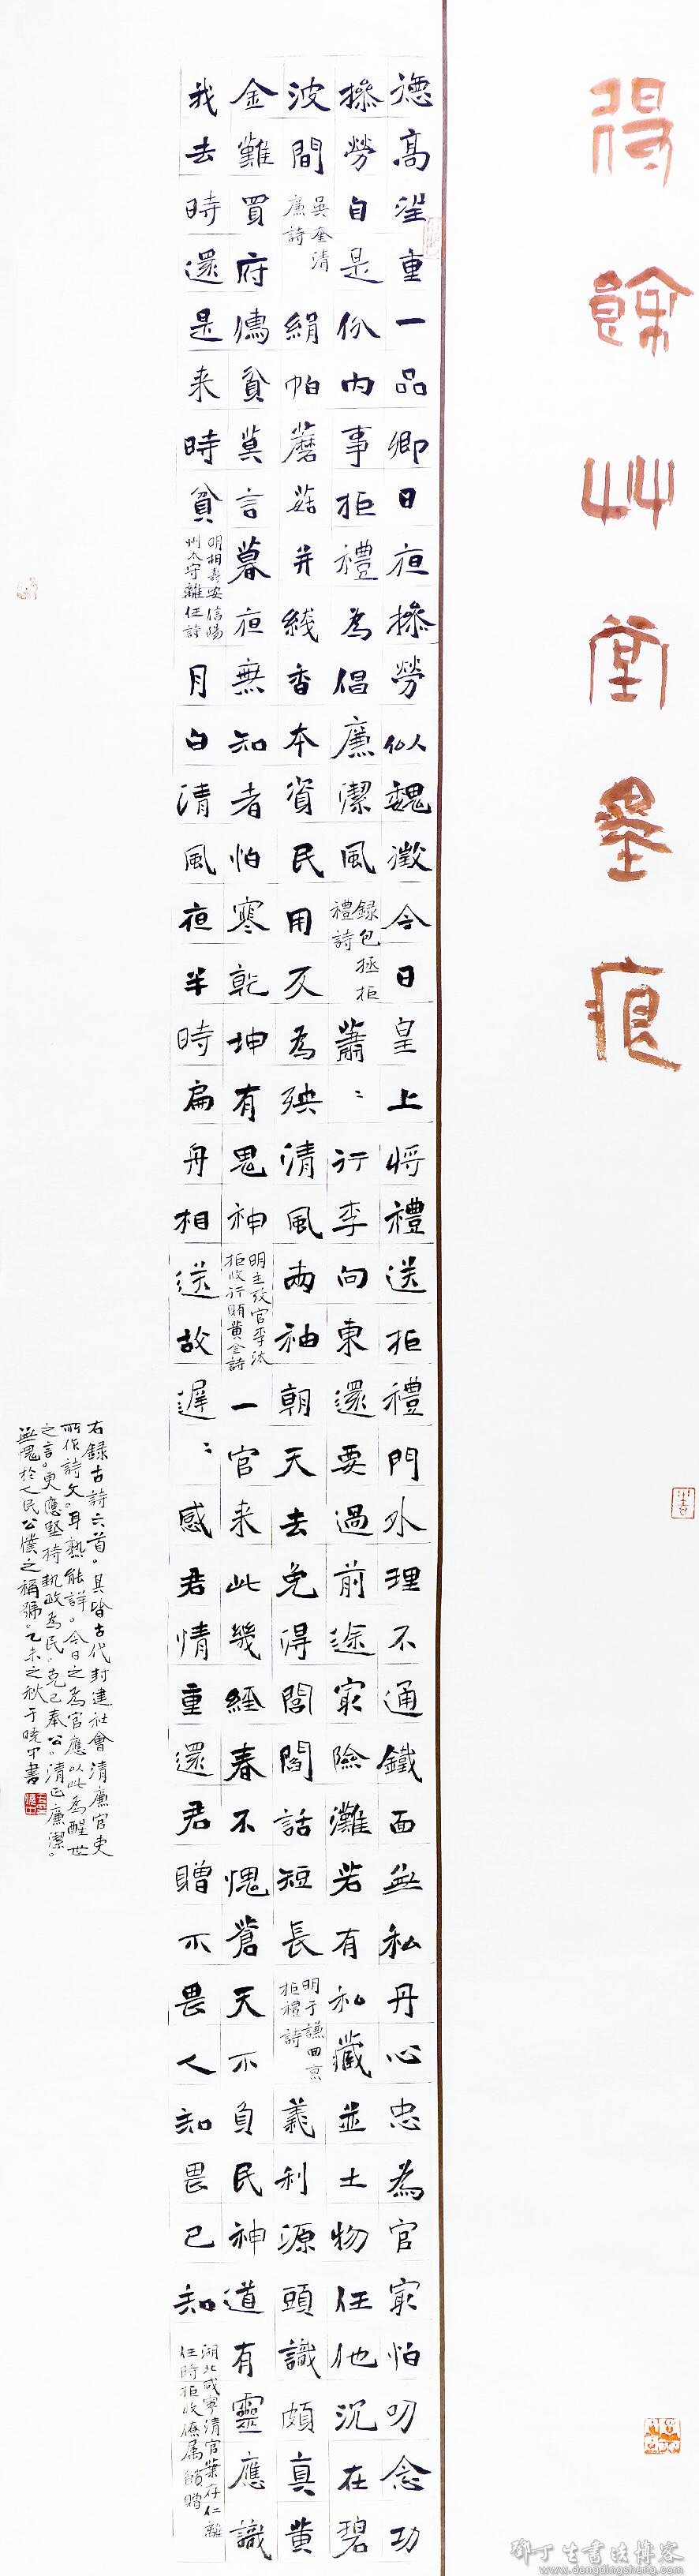 得餘艸堂墨痕
德高望重一品卿日夜操勞似魏徵今日皇上將禮送拒禮門外理不通鐵面無私丹心忠為官最怕叨念功
操勞自是份內事拒禮為倡廉潔風
錄包拯拒
禮詩
蕭〻行李向東還要過前途最險灘若有私藏並土物任他沉在碧
波間
吳奎清
廉詩
絹帕蘑菇并綫香本資民用反為殃清風兩袖朝天去免得閭閻話短長
明于謙回京
拒禮詩
義利源頭識頗真黃
金難買府儒貧莫言暮夜無知者怕寒乾坤有鬼神
明主政官李汰
拒收行賄黃金詩
一官来此幾經春不愧蒼天不負民神道有靈應識
我去時還是来時貧
明相壽安信陽
州太守離任詩
月白清風夜半時扁舟相送故遲〻感君情重還君贈不畏人知畏己知
湖北咸寧清官葉存仁離
任時拒收僚属饋贈
右録古詩六首。其皆古代封建社會清廉官吏
所作詩文。耳熟能詳。今日之為官應以此為醒世
之言。更應堅持執政為民。克己奉公。清正廉潔。
無愧於人民公僕之稱號。乙未之秋于曉中書
鄧丁生書法博客
www.dengdingsheng.com